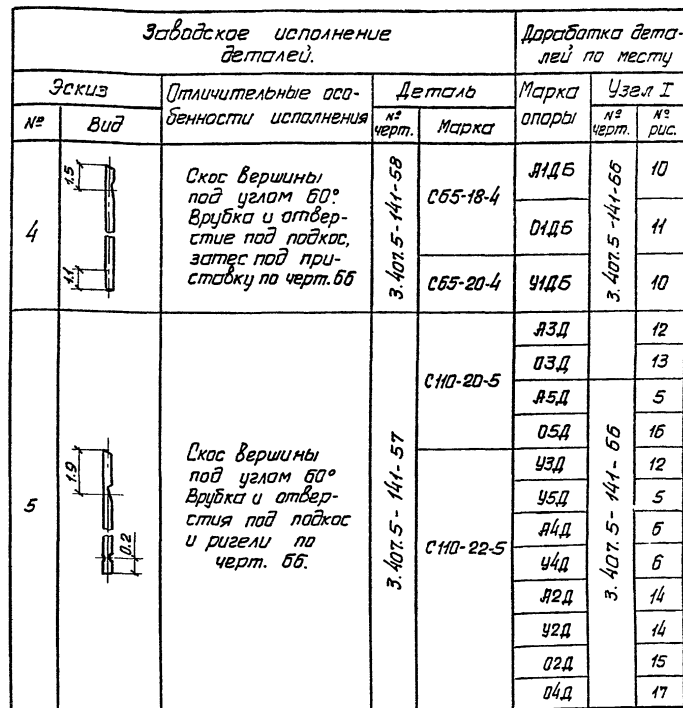 Заводское исполнение
деталей.
Доработка дета-
лей по месту
Эскиз
Отличительные осо-
бенности исполнения
Деталь
Марка
опоры
Узел I
№
Вид
№
черт.
Марка
№
черт.
№
рис.
4
1.5
1.1
Скос вершины
под углом 60°
Врубка и отвер-
стие под подкос,
затес под при-
ставку по черт. 66
3.407.5-141-58
С65-18-4
С65-20-4
А1ДБ
О1ДБ
У1ДБ
3.407.5-141-66
10
11
10
5
1.9
0.2
Скос вершины
под углом 60°
Врубка и отвер-
стия под подкос
и ригели по
черт. 66.
3.407.5-141-57
С110-20-5
С110-22-5
А3Д
12
О3Д
13
А5Д
5
О5Д
16
У3Д
12
У5Д
5
А4Д
6
У4Д
6
А2Д
14
У2Д
14
О2Д
15
О4Д
17
3.407.5-141-66